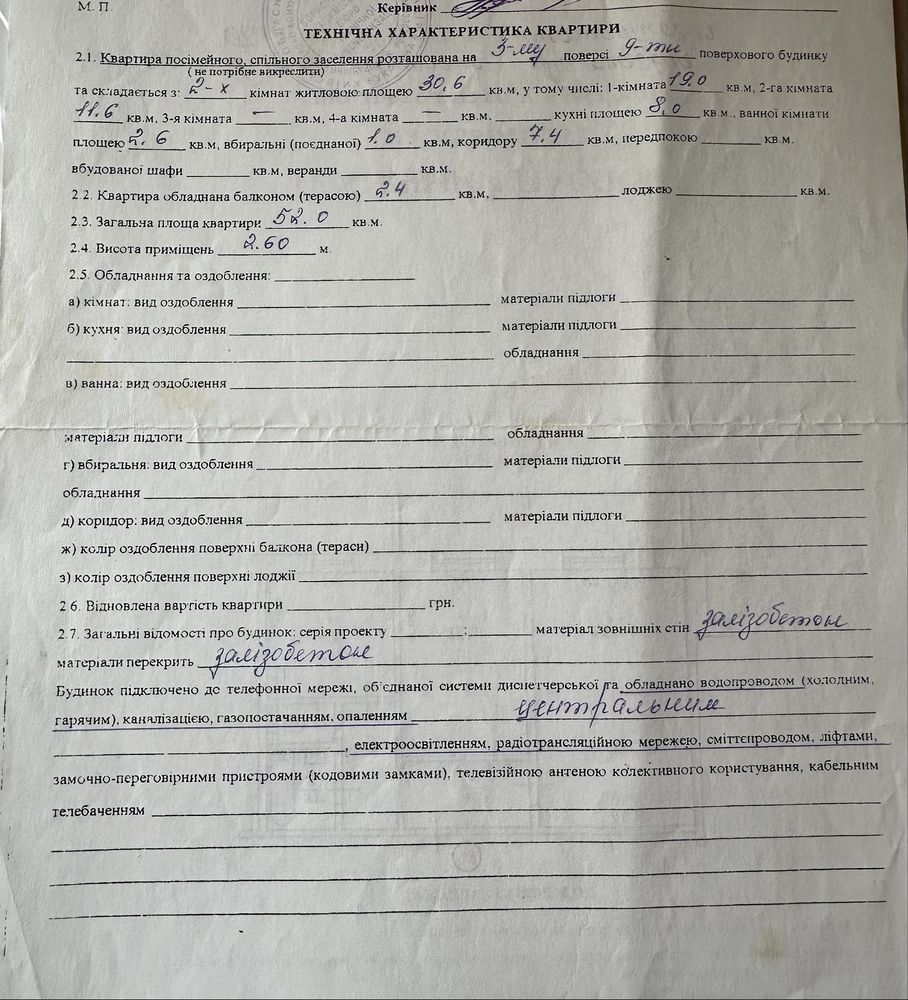 М. П
Керівник
ТЕХНІЧНА ХАРАКТЕРИСТИКА КВАРТИРИ
2.1. Квартира посімейного, спільного заселення розташована на 3-му поверсі 9-ти поверхового будинку
( не потрібне викреслити)
та складається з: 2-х кімнат житловою площею 30,6 кв.м, у тому числі: 1-кімната 19.0 кв.м, 2-га кімната
11.6 кв.м, 3-я кімната — кв.м, 4-а кімната — кв.м, кухні площею 8,0 кв.м., ванної кімнати
площею 2.6 кв.м, вбиральні (поєднаної) 1.0 кв.м, коридору 7.4 кв.м, передпокою кв.м.
вбудованої шафи кв.м, веранди кв.м.
2.2. Квартира обладнана балконом (терасою) 2.4 кв.м, лоджею кв.м.
2.3. Загальна площа квартири 52.0 кв.м.
2.4. Висота приміщень 2.60 м.
2.5. Обладнання та оздоблення:
а) кімнат: вид оздоблення матеріали підлоги
б) кухня: вид оздоблення матеріали підлоги
обладнання
в) ванна: вид оздоблення
матеріали підлоги обладнання
г) вбиральня: вид оздоблення матеріали підлоги
обладнання
д) коридор: вид оздоблення матеріали підлоги
ж) колір оздоблення поверхні балкона (тераси)
з) колір оздоблення поверхні лоджії
2 6. Відновлена вартість квартири грн.
2.7. Загальні відомості про будинок: серія проекту ; матеріал зовнішніх стін залізобетон
матеріали перекрить залізобетон
Будинок підключено до телефонної мережі, об'єднаної системи диспетчерської та обладнано водопроводом (холодним,
гарячим), каналізацією, газопостачанням, опаленням центральним
, електроосвітленням, радіотрансляційною мережею, сміттєпроводом, ліфтами,
замочно-переговірними пристроями (кодовими замками), телевізійною антеною колективного користування, кабельним
телебаченням